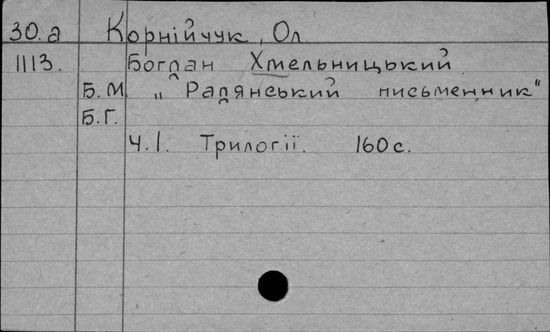 30.а Корнійчук, Ол.
1113. Богдан Хмельницький.
Б.М. „Радянський письменник"
Б.Г.
Ч.I. Трилогії. 160 с.